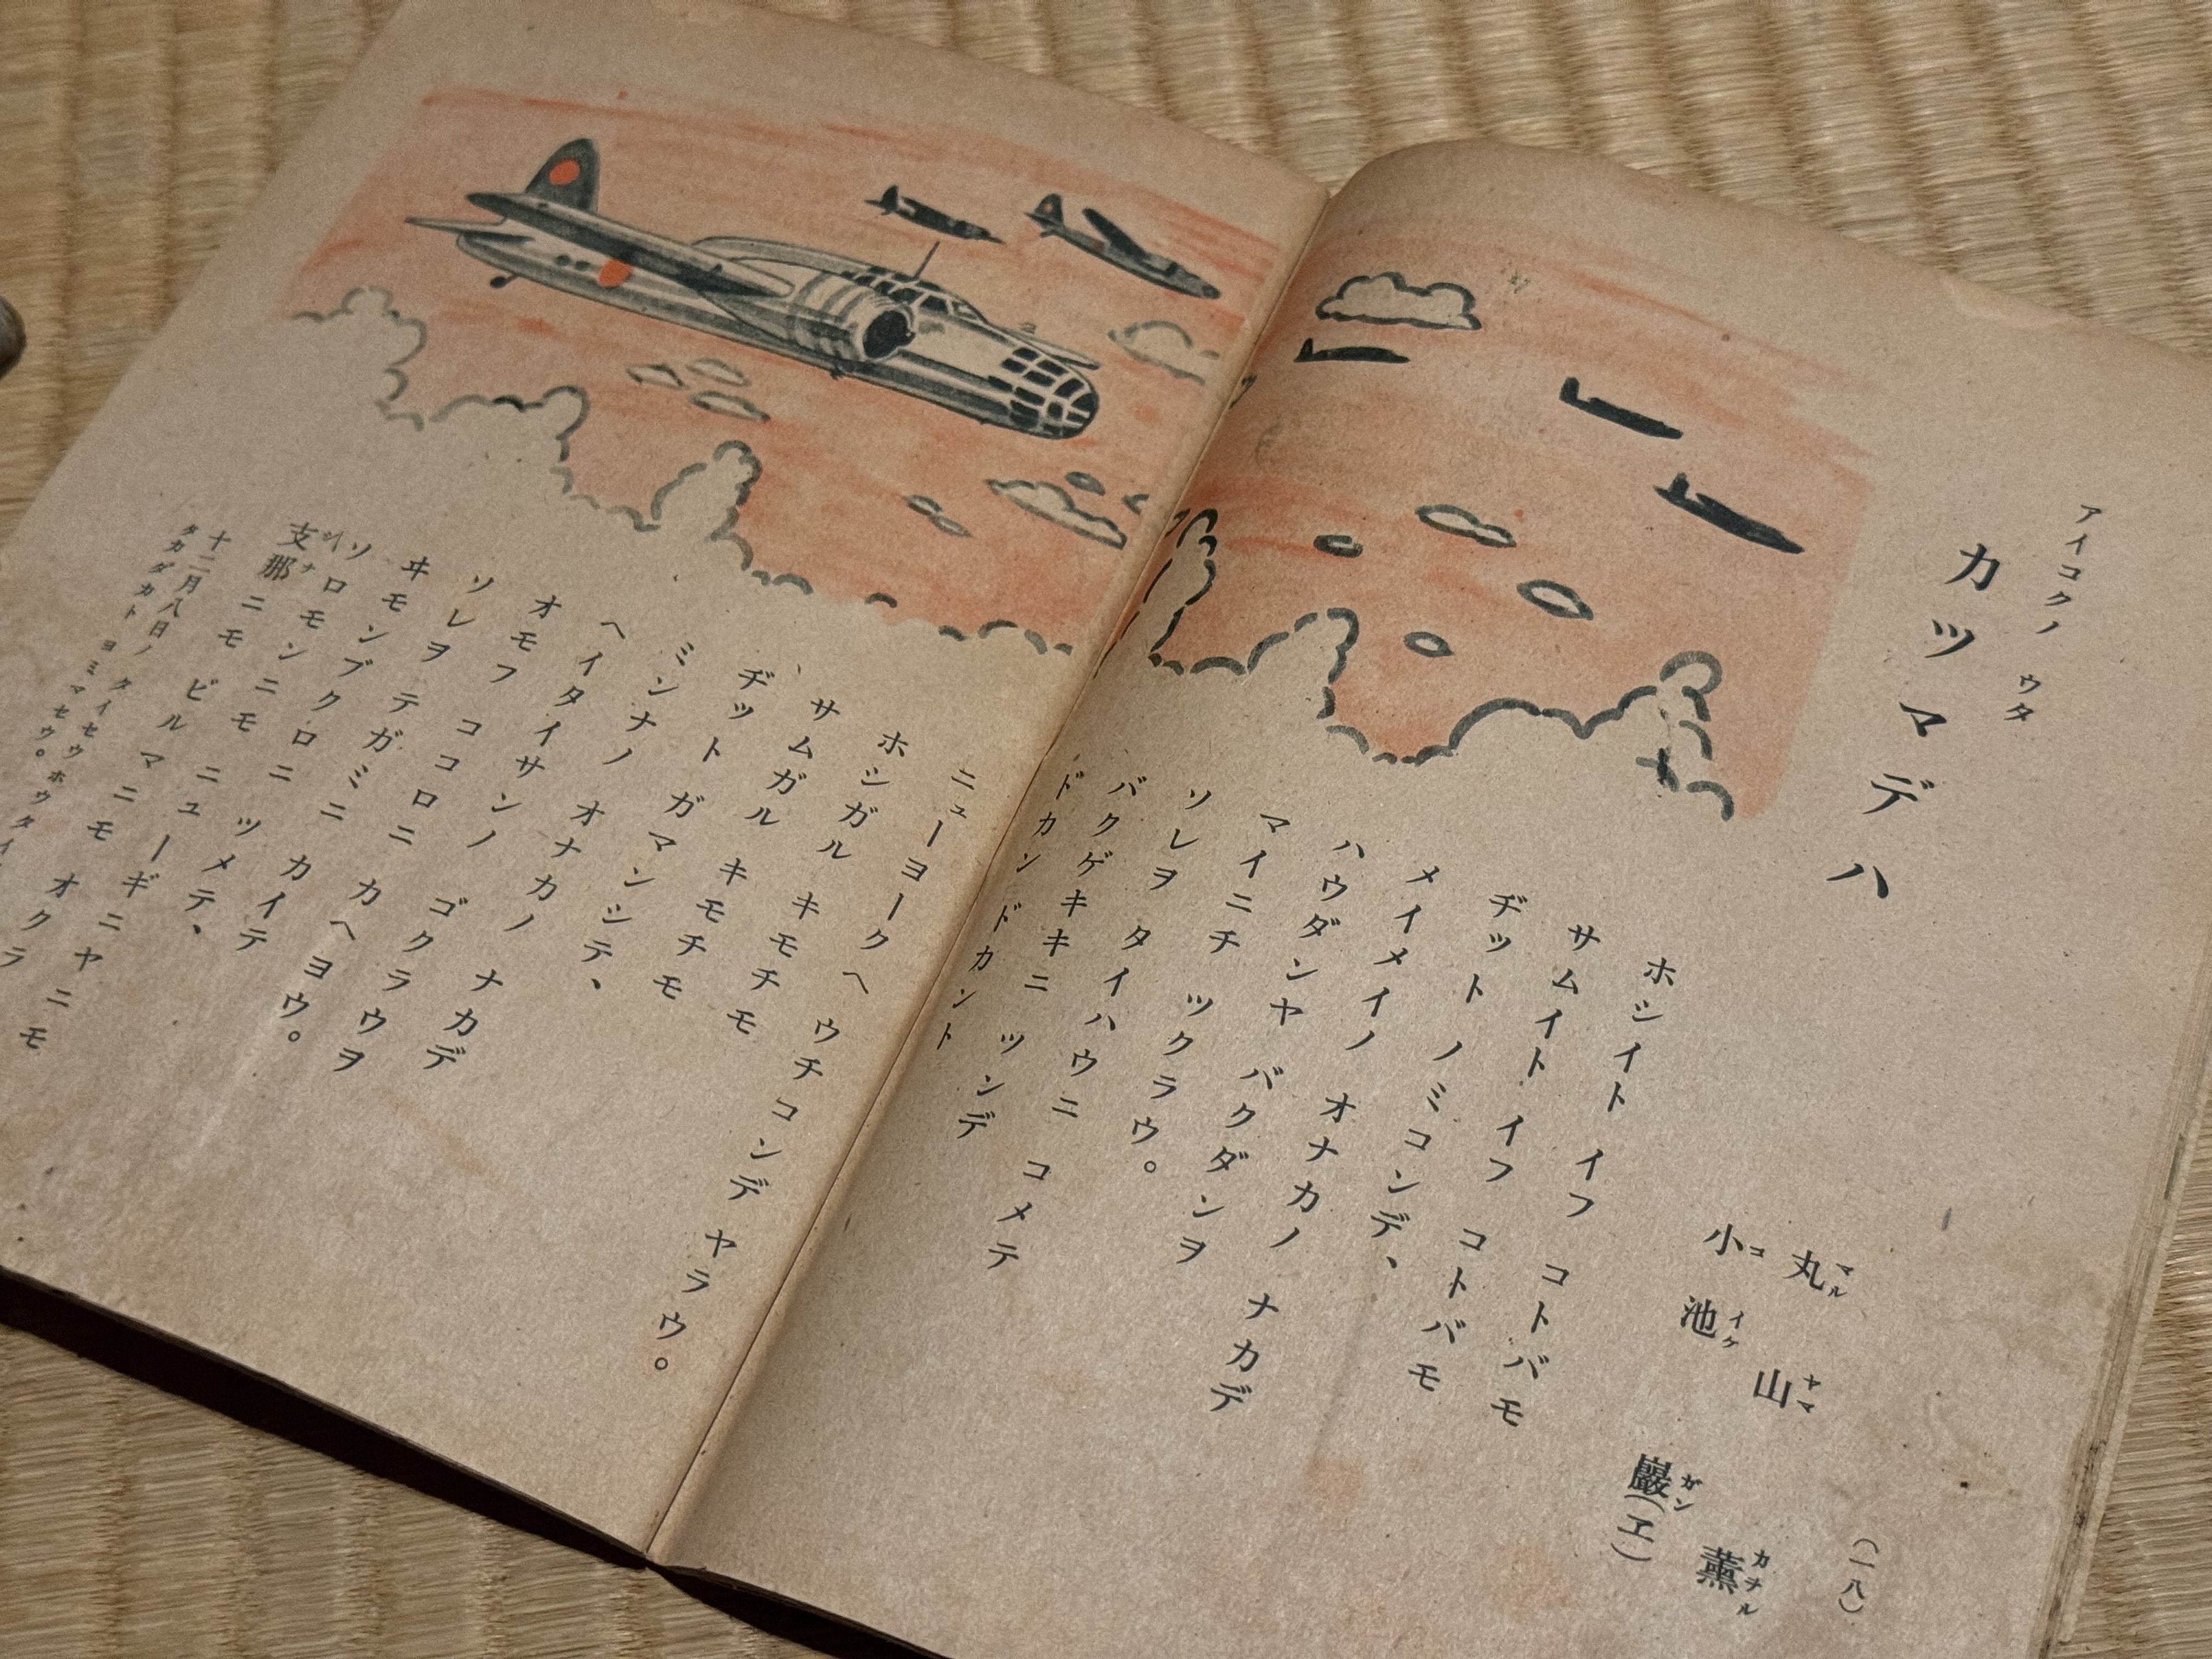 (一八)
アイコクノ ウタ
カツマデハ
丸山薫
マルヤマカヲル
小池巖(ヱ)
コイケガン
ホシイト イフ コトバモ
サムイト イフ コトバモ
ヂット ノミコンデ、
メイメイノ オナカノ ナカデ
ハウダンヤ バクダンヲ
マイニチ ツクラウ。
ソレヲ タイハウニ コメテ
バクゲキキニ ツンデ
ドカン ドカント
ニューヨークヘ ウチコンデ ヤラウ。
ホシガル キモチモ
サムガル キモチモ
ヂット ガマンシテ、
ミンナノ オナカノ ナカデ
ヘイタイサンノ ゴクラウヲ
オモフ ココロニ カヘヨウ。
ソレヲ テガミニ カイテ
ヰモンブクロニ ツメテ、
ソロモンニモ ニューギニヤニモ
支那ニモ ビルマニモ オクラ
シナ
十二月八日ノ タイセウホウタイ
タカダカト ヨミマセウ。